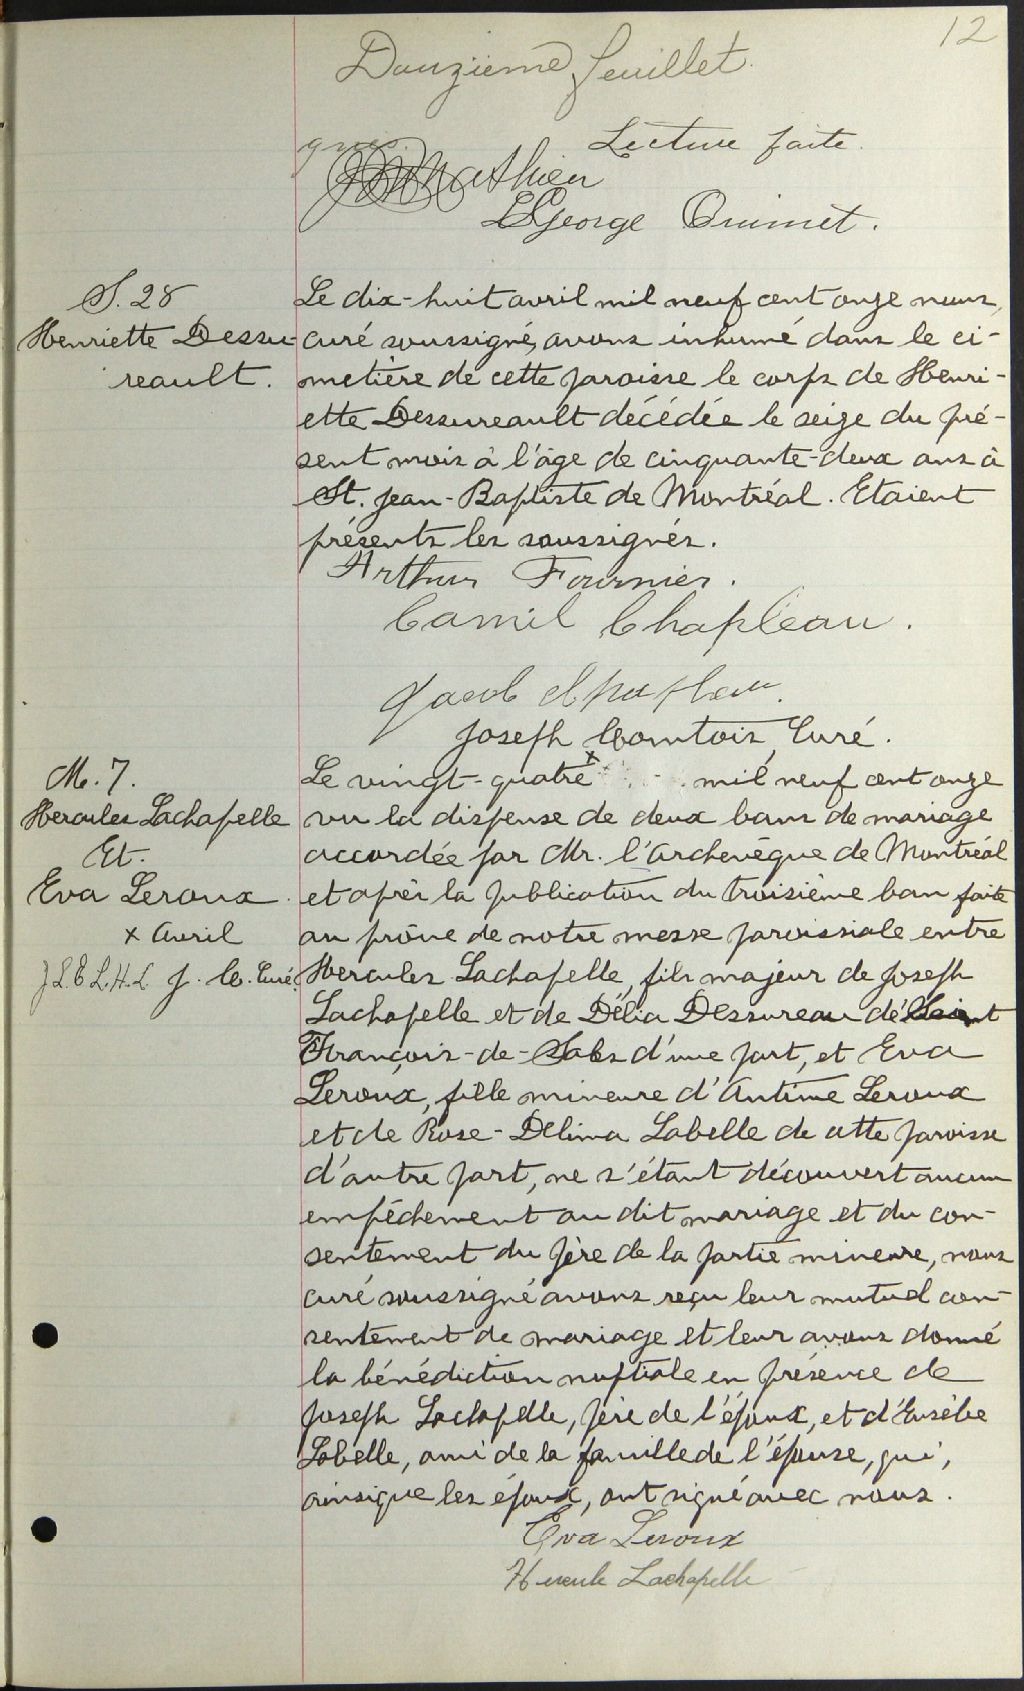 12
Douzième feuillet.
Lecture faite.
Mathieu
George Ouimet.
S. 28
Henriette Dessu-
reault.
Le dix-huit avril mil neuf cent onze nous,
curé soussigné, avons inhumé dans le ci-
metière de cette paroisse le corps de Henri-
ette Dessureault décédée le seize du pré-
sent mois à l'âge de cinquante-deux ans à
St. Jean-Baptiste de Montréal. Etaient
présents les soussignés.
Arthur Fournier.
Camil Chapleau.
Jacob Chapleau.
Joseph Comtois, Curé.
M. 7.
Hercules Lachapelle
Et.
Eva Leroux.
x Avril
J. L. E. L. H. L. J. C. Curé.
Le vingt-quatre x mil neuf cent onze
vu la dispense de deux bans de mariage
accordée par Mr. l'Archevêque de Montréal
et après la publication du troisième ban faite
au prône de notre messe paroissiale entre
Hercules Lachapelle, fils majeur de Joseph
Lachapelle et de Délia Dessureau de Saint
François-de-Sales d'une part, et Eva
Leroux, fille mineure d'Antime Leroux
et de Rose-Délima Labelle de cette paroisse
d'autre part, ne s'étant découvert aucun
empêchement au dit mariage et du con-
sentement du père de la partie mineure, nous
curé soussigné avons reçu leur mutuel con-
sentement de mariage et leur avons donné
la bénédiction nuptiale en présence de
Joseph Lachapelle, père de l'époux, et d'Eusèbe
Labelle, ami de la famille de l'épouse, qui,
ainsi que les époux, ont signé avec nous.
Eva Leroux
Hercule Lachapelle